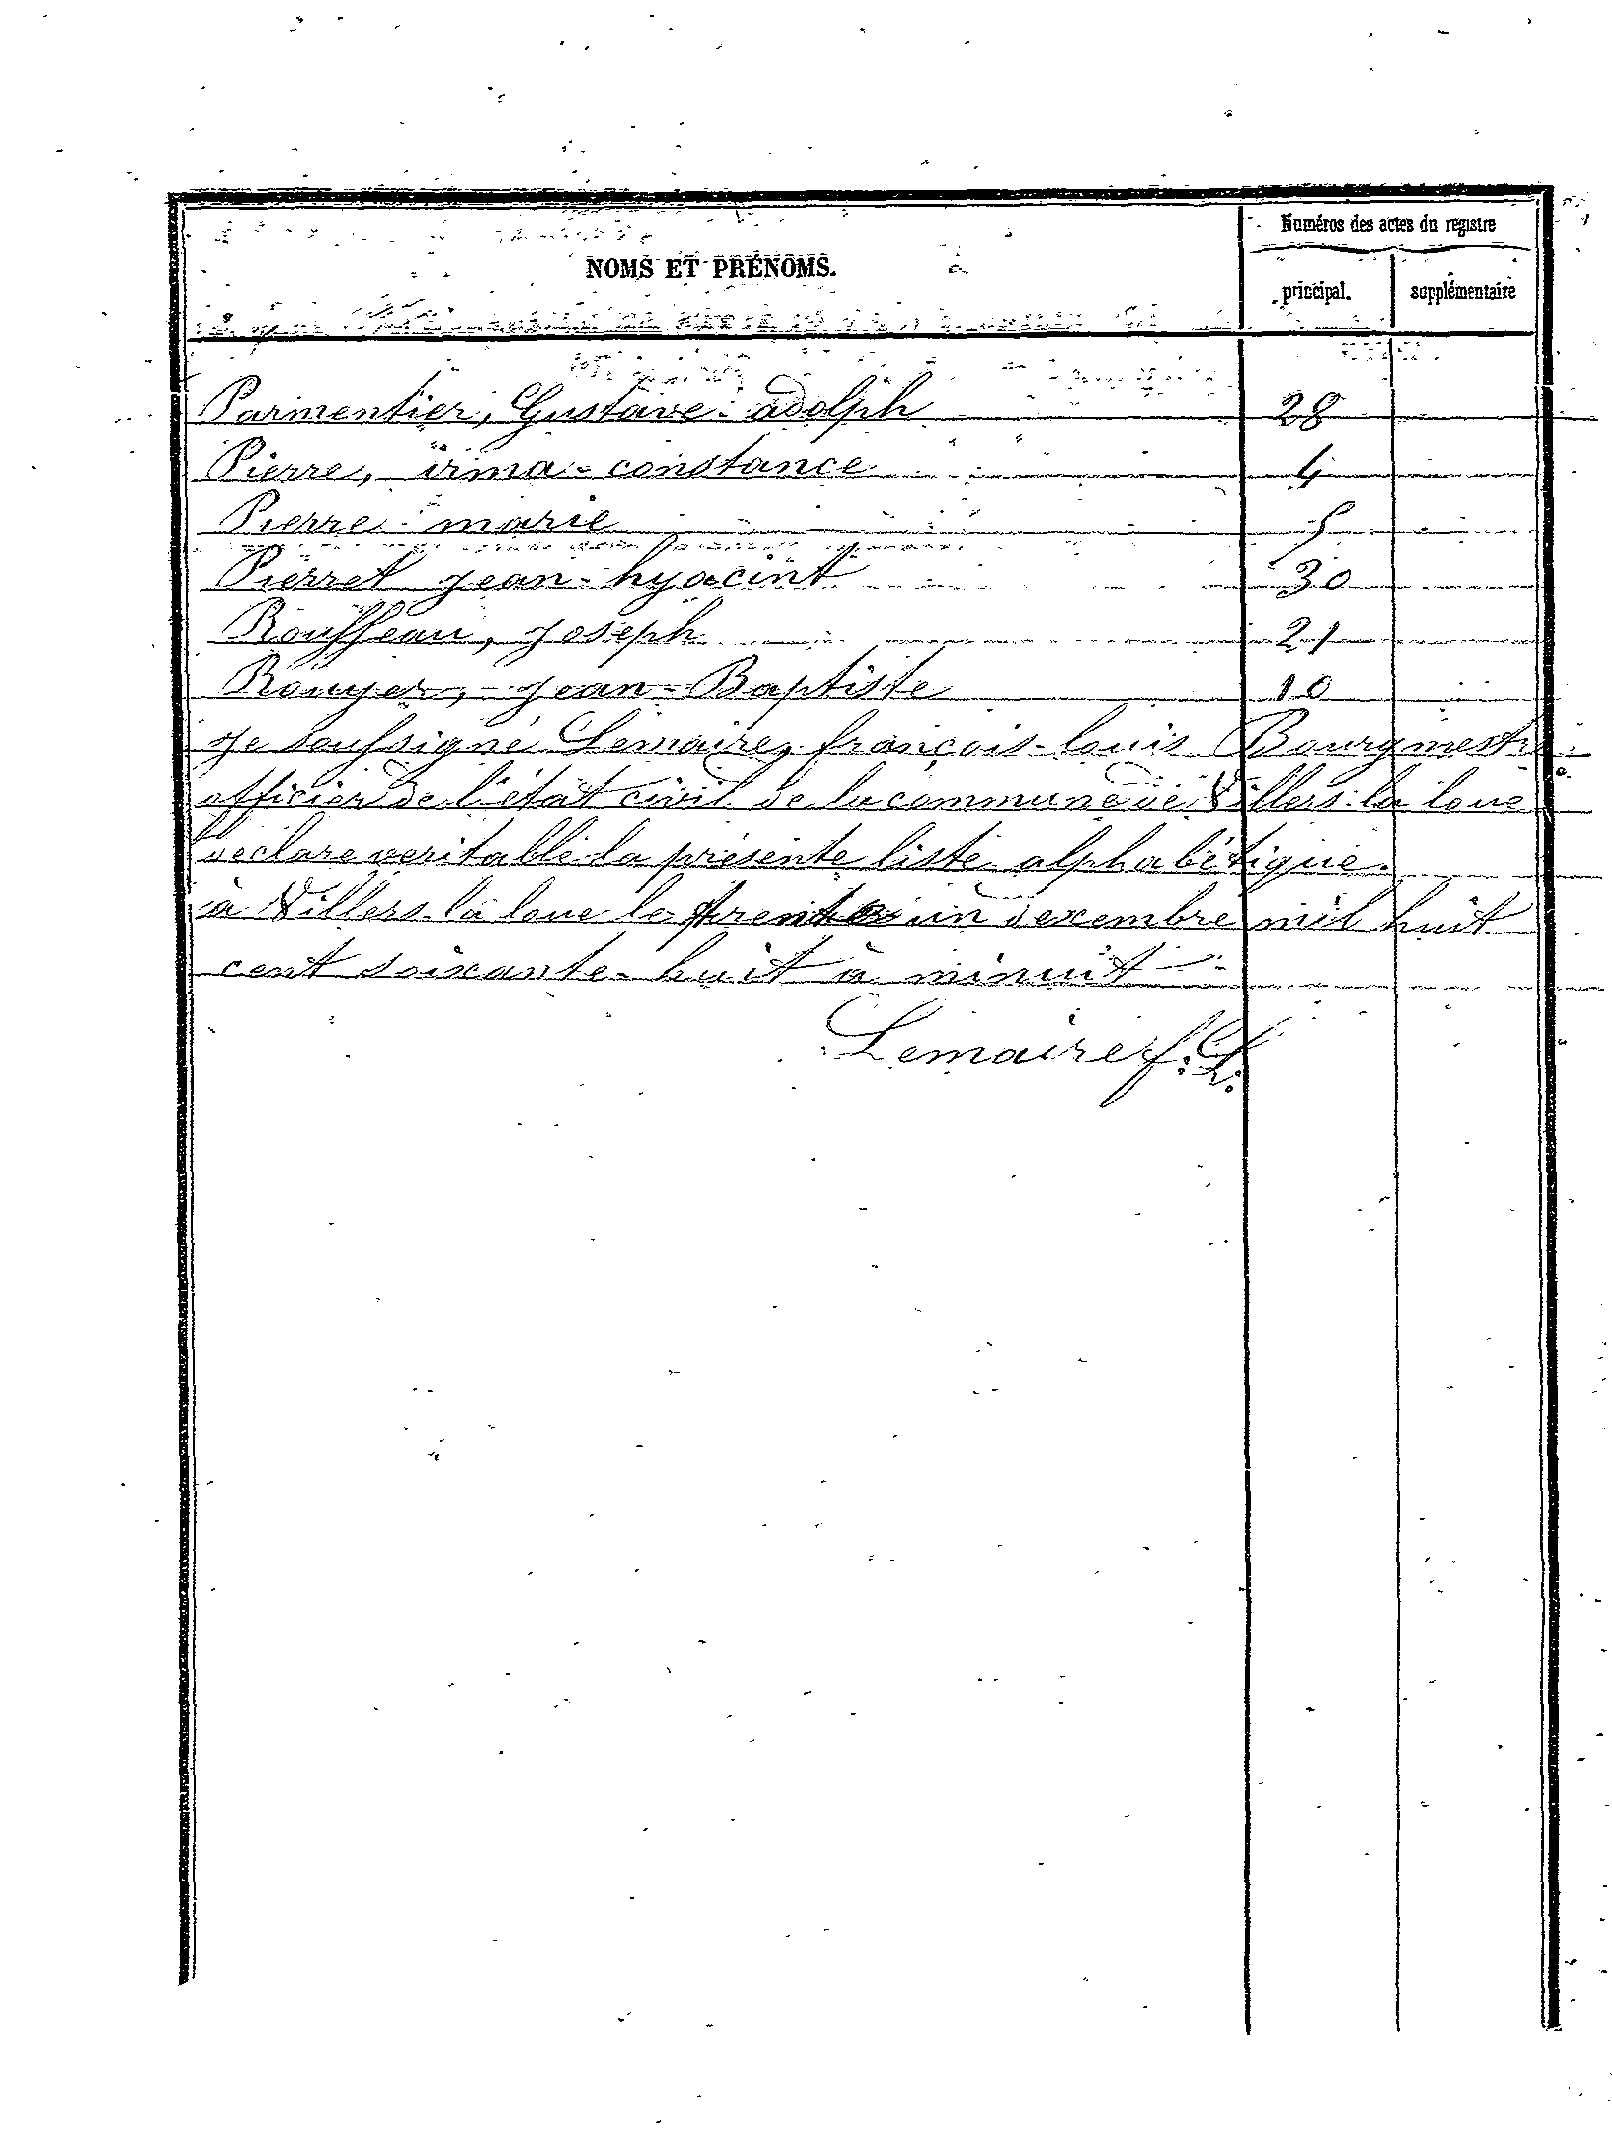 Numéros des actes du registre
NOMS ET PRÉNOMS.
principal. supplémentaire
Parmentier, Gustave-adolph 28
Pierre, irma-constance 4
Pierre marie 5
Pierret jean-hyacint 30
Rousseau, Joseph 21
Rouyer, jean-Baptiste 10
Je soussigné Lemaire, françois-louis Bourgmestre
officier de l'état civil de la commune de Villers-la loue
déclare veritable la présente liste alphabétique.
à Villers-la loue le trente un decembre mil huit
cent soixante-huit à minuit
Lemaire f. L.